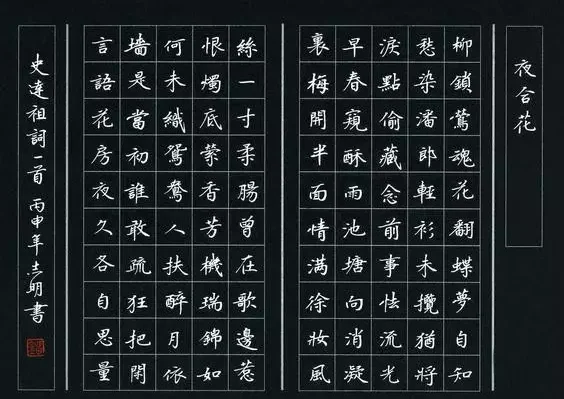 夜合花
柳鎖鶯魂花翻蝶夢自知
愁染潘郎輕衫未攬猶將
淚點偷藏念前事怯流光
早春窺酥雨池塘向消凝
裏梅開半面情滿徐妝風
絲一寸柔腸曾在歌邊惹
恨燭底蒙香芳機瑞錦如
何未織鴛鴦人扶醉月依
墻是當初誰敢疏狂把閑
言語花房夜久各自思量
史達祖詞一首 丙申年志明書